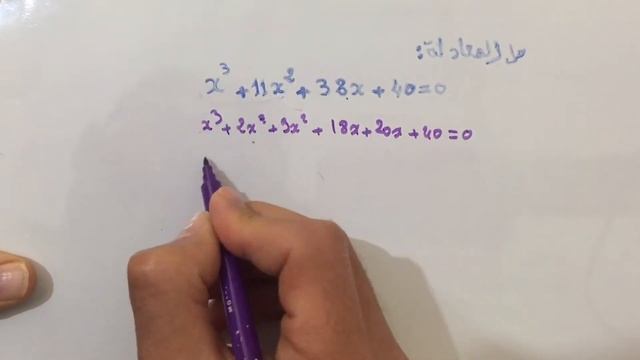 حل المعادلة:
x³ + 11x² + 38x + 40 = 0
x³ + 2x² + 9x² + 18x + 20x + 40 = 0